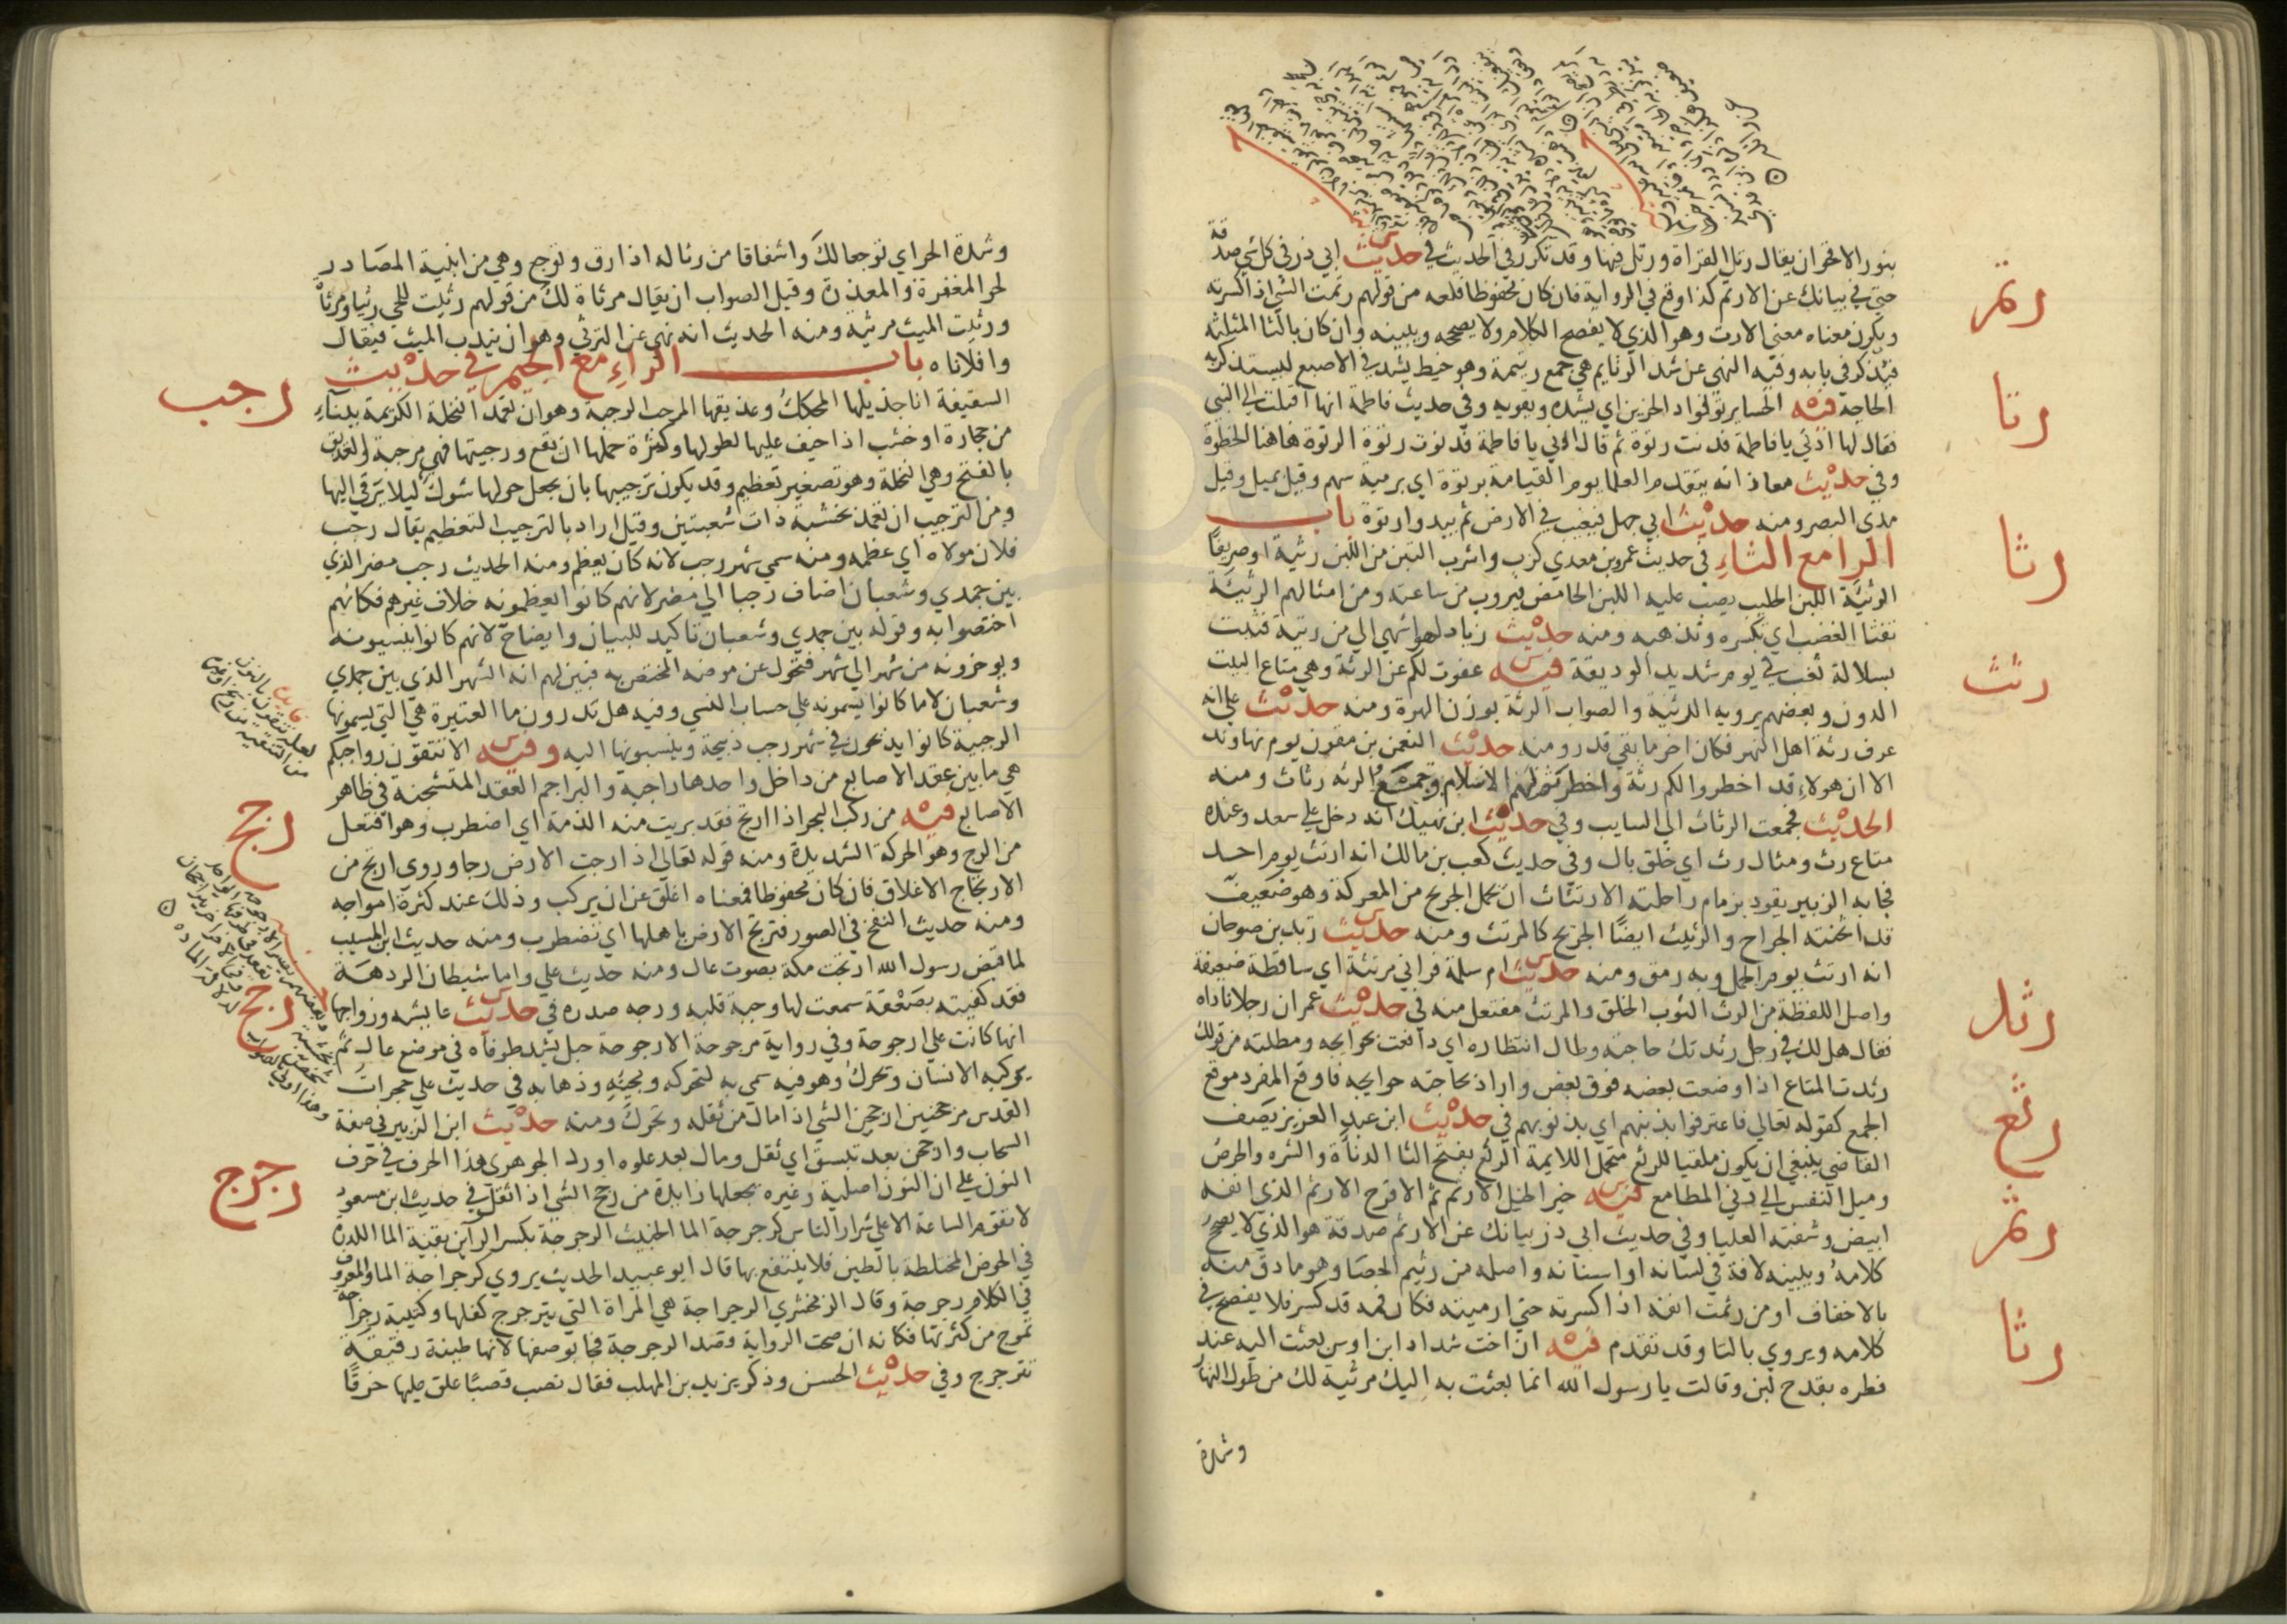 بنور الاقحوان يقال رتل القراة ورتل فيها وقد تكرر في الحديث في حديث ابي ذر في كل شي صدقة
حتي في بيانك عن الارتم كذا وقع في الرواية فان كان محفوظا فلعله من قولهم رتمت الشي اذا كسرته
ويكون معناه معني الارت وهو الذي لا يفصح الكلام ولا يصححه ويبينه وان كان بالثا المثلثه
فيذكر في بابه وفيه النهي عن شد الرتايم هي جمع رتيمة وهو خيط يشد في الاصبع ليستذكر به
الحاجة فيه الحسا يرتو فواد الحزين اي يشده ويقويه وفي حديث فاطمة انها اقبلت الي النبي
فقال لها ادني يا فاطمة فدنت رتوة ثم قال ادني يا فاطمة فدنوت رتوة الرتوة هاهنا الخطوة
وفي حديث معاذ انه يتقدم العلما يوم القيامة برتوة اي برمية سهم وقيل بميل وقيل
مدي البصر ومنه حديث ابي جهل فيغيب في الارض ثم يبدو رتوة باب
الرا مع الثاء في حديث عمرو بن معدي كرب واشرب التبن من اللبن رثية او صريفًا
الرثيئة اللبن الحليب يصب عليه اللبن الحامض فيروب من ساعته ومن امثالهم الرثيئة
تفثا الغضب اي تكسره وتذهبه ومنه حديث زياد لهو اشهي الي من رثية فثئت
بسلالة ثغب في يوم شديد الوديقة فيه عفوت لكم عن الرثة وهي متاع البيت
الدون وبعضهم يرويه الرثية والصواب الرثة بوزن الهرة ومنه حديث علي انه
عرف رثة اهل النهر فكان اخر ما بقي قدر ومنه حديث النعمن بن مقرن يوم نهاوند
الا ان هولاء قد اخطروا لكم رثة واخطرتم لهم الاسلام وجمع الرثه رثاث ومنه
الحديث فجمعت الرثاث الي السايب وفي حديث ابن نهيك انه دخل علي سعد وعنده
متاع رث ومثال رث اي خلق بال وفي حديث كعب بن مالك انه ارتث يوم احد
فجا به الزبير يقود بزمام راحلته الارتثاث ان يحمل الجريح من المعركة وهو ضعيف
قد اثخنته الجراح والرثيث ايضًا الجريح كالمرتث ومنه حديث زيد بن صوحان
انه ارتث يوم الجمل وبه رمق ومنه حديث ام سلمة فراني مرتثة اي ساقطة ضعيفة
واصل اللفظة من الرث الثوب الخلق والمرتث مفتعل منه في حديث عمران رجلا ناداه
فقال هل لك في رجل رثدت حاجته وطال انتظاره اي دافعت بحوايجه ومطلته من قولك
رثدت المتاع اذا وضعت بعضه فوق بعض واراد بحاجته حوايجه فاوقع المفرد موقع
الجمع كقوله تعالي فاعترفوا بذنبهم اي بذنوبهم في حديث ابن عبد العزيز يصف
القاضي ينبغي ان يكون ملقيا للرثع متحملا للايمة الرثع بفتح الثا الدناة والشره والحرص
وميل النفس الي دني المطامع فيه خير الخيل الارثم ثم الاقرح الارثم الذي انفه
ابيض وشفته العليا وفي حديث ابي ذر بيانك عن الارثم صدقة هو الذي لا يصحح
كلامه ويبينه لافة في لسانه او اسنانه واصله من رثيم الحصا وهو ما دق منه
بالاخفاف او من رثمت انفه اذا كسرته حتي ارميته فكان فمه قد كسر فلا يفصح في
كلامه ويروي بالتا وقد تقدم فيه ان اخت شداد ابن اوس بعثت اليه عند
فطره بقدح لبن وقالت يا رسول الله انما بعثت به اليك مرثية لك من طول النهار
وشدة
رتم
رتا
رثا
رثث
رثد
رثع
رثم
رثا
وشدة الحر اي توجعا لك واشفاقا من رثا له اذا رق وتوجع وهي من ابنية المصادر
نحو المغفرة والمعذرة وقيل الصواب ان يقال مرثاة لك من قولهم رثيت للحي رثيا ومرثاة
ورثيت الميت مرثية ومنه الحديث انه نهي عن الترثي وهو ان يندب الميت فيقال
وافلاناه باب الراء مع الجيم في حديث
السقيفة انا جذيلها المحكك وعذيقها المرجب الرجبة وهو ان تعمد النخلة الكريمة ببناء
من حجارة او خشب اذا خيف عليها لطولها وكثرة حملها ان تقع ورجبتها فهي مرجبة والعذيق
بالفتح وهي النخلة وهو تصغير تعظيم وقد يكون ترجيبها بان يجعل حولها شوك ليلا يترقي اليها
ومن الترجيب ان تعمد بخشبة ذات شعبتين وقيل اراد بالترجيب التعظيم يقال رجب
فلان مولاه اي عظمه ومنه سمي شهر رجب لانه كان يعظم ومنه الحديث رجب مضر الذي
بين جمدي وشعبان اضاف رجبا الي مضر لانهم كانوا يعظمونه خلاف غيرهم فكانهم
اختصوا به وقوله بين جمدي وشعبان تاكيد للبيان وايضاح لانهم كانوا ينسيونه
ويوخرونه من شهر الي شهر فتحول عن موضعه المختص به فبين لهم انه الشهر الذي بين جمدي
وشعبان لا ما كانوا يسمونه علي حساب النسي وفيه هل تدرون ما العتيرة هي التي يسمونها
الرجبية كانوا يذبحون في شهر رجب ذبيحة وينسبونها اليه وفيه الا تنقون رواجبكم
هي ما بين عقد الاصابع من داخل واحدها راجبه والبراجم العقد المتشنجه في ظاهر
الاصابع فيه من ركب البحر اذا ارتج فقد بريت منه الذمة اي اضطرب وهو افتعل
من الرج وهو الحركة الشديدة ومنه قوله تعالي اذا رجت الارض رجا وروي ارتج من
الارتجاج الاغلاق فان كان محفوظا فمعناه اغلق عن ان يركب وذلك عند كثرة امواجه
ومنه حديث النفخ في الصور فترتج الارض باهلها اي تضطرب ومنه حديث ابن المسيب
لما قبض رسول الله ارتجت مكة بصوت عال ومنه حديث علي واما شيطان الردهة
فقد كفيته بصعقة سمعت لها وجبة قلبه ورجه صدره في حديث عايشه وزواجها
انها كانت علي ارجوحة وفي رواية مرجوحة الارجوحة حبل يشد طرفاه في موضع عال ثم
يركبه الانسان ويحرك وهو فيه سمي به لتحركه ومجيئه وذهابه في حديث علي حجرات
القدس مرجحنين ارجحن الشي اذا مال من ثقله وتحرك ومنه حديث ابن الزبير في صفة
السحاب وارجحن بعد تبسق اي ثقل ومال بعد علوه اورد الجوهري هذا الحرف في حرف
النون علي ان النون اصلية وغيره يجعلها زايدة من رجح الشي اذا ثقل في حديث ابن مسعود
لا تقوم الساعة الا علي شرار الناس كرجرجة الما الخبيث الرجرجة بكسر الراين بقية الما الكدرة
في الحوض المختلطة بالطين فلا ينتفع بها قال ابو عبيد الحديث يروي كرجراجة الما والمعروف
في الكلام رجرجة وقال الزمخشري الرجراجة هي المراة التي يترجرج كفلها وكتيبة رجراجة
تموج من كثرتها فكانه ان صحت الرواية قصد الرجرجة فجا بوصفها لانها طينة رقيقة
تترجرج وفي حديث الحسن وذكر يزيد بن المهلب فقال نصب قصبًا علق عليها خرقًا
رجب
رجج
رجح
رجرج